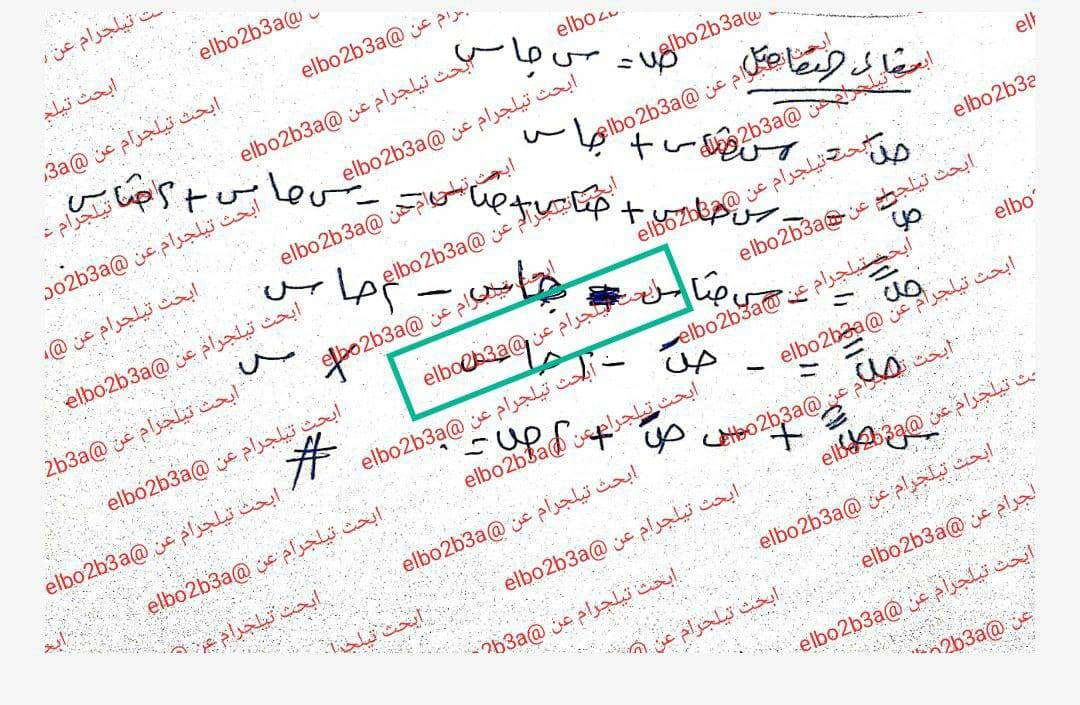 مقالى التفاضل ص = س جا س
صَ = س جتا س + جا س
صً = - س جا س + جتا س + جتا س = - س جا س + ٢ جتا س
= - س جتا س - جا س - ٢ جا س
= - صَ - ٢ جا س × س
+ س صً + ٢ ص = ٠ #
ابحث تيلجرام عن @elbo2b3a